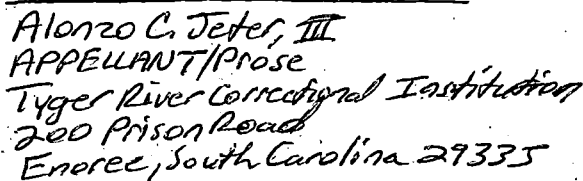 Alonzo C. Jeter, III
APPELLANT/Prose
Tyger River Correctional Institution
200 Prison Road
Enoree, South Carolina 29335